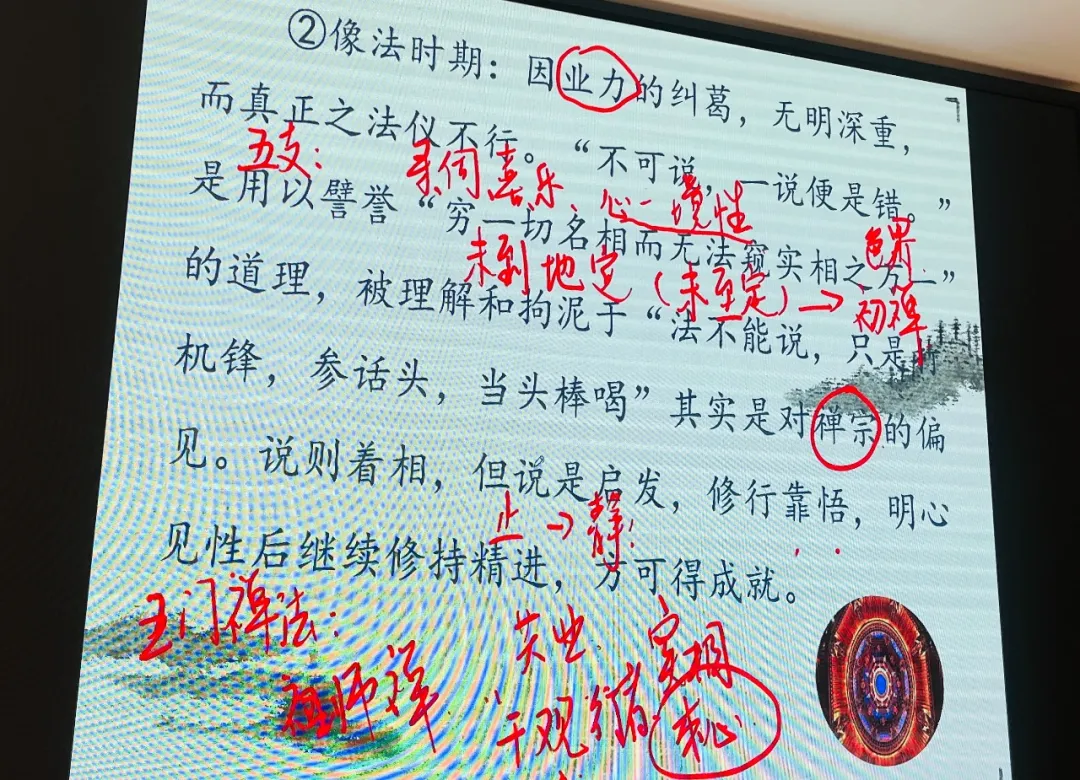 ②像法时期：因业力的纠葛，无明深重，
而真正之法仪不行。“不可说，一说便是错。”
五支： 喜乐、心一境性
是用以譬誉“穷一切名相而无法窥实相之万一”
色界
未到地定（未至定）→初禅
的道理，被理解和拘泥于“法不能说，只是
机锋，参话头，当头棒喝”其实是对禅宗的偏
见。说则着相，但说是启发，修行靠悟，明心
止→静：
见性后继续修持精进，方可得成就。
五门禅法：
祖师禅
共业 实相
观